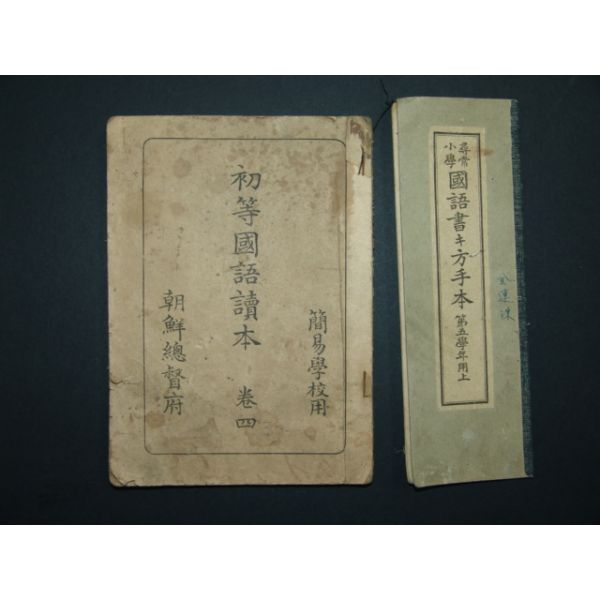 簡易學校用
初等國語讀本 卷四
朝鮮總督府
尋常小學 國語書キ方手本 第五學年用上